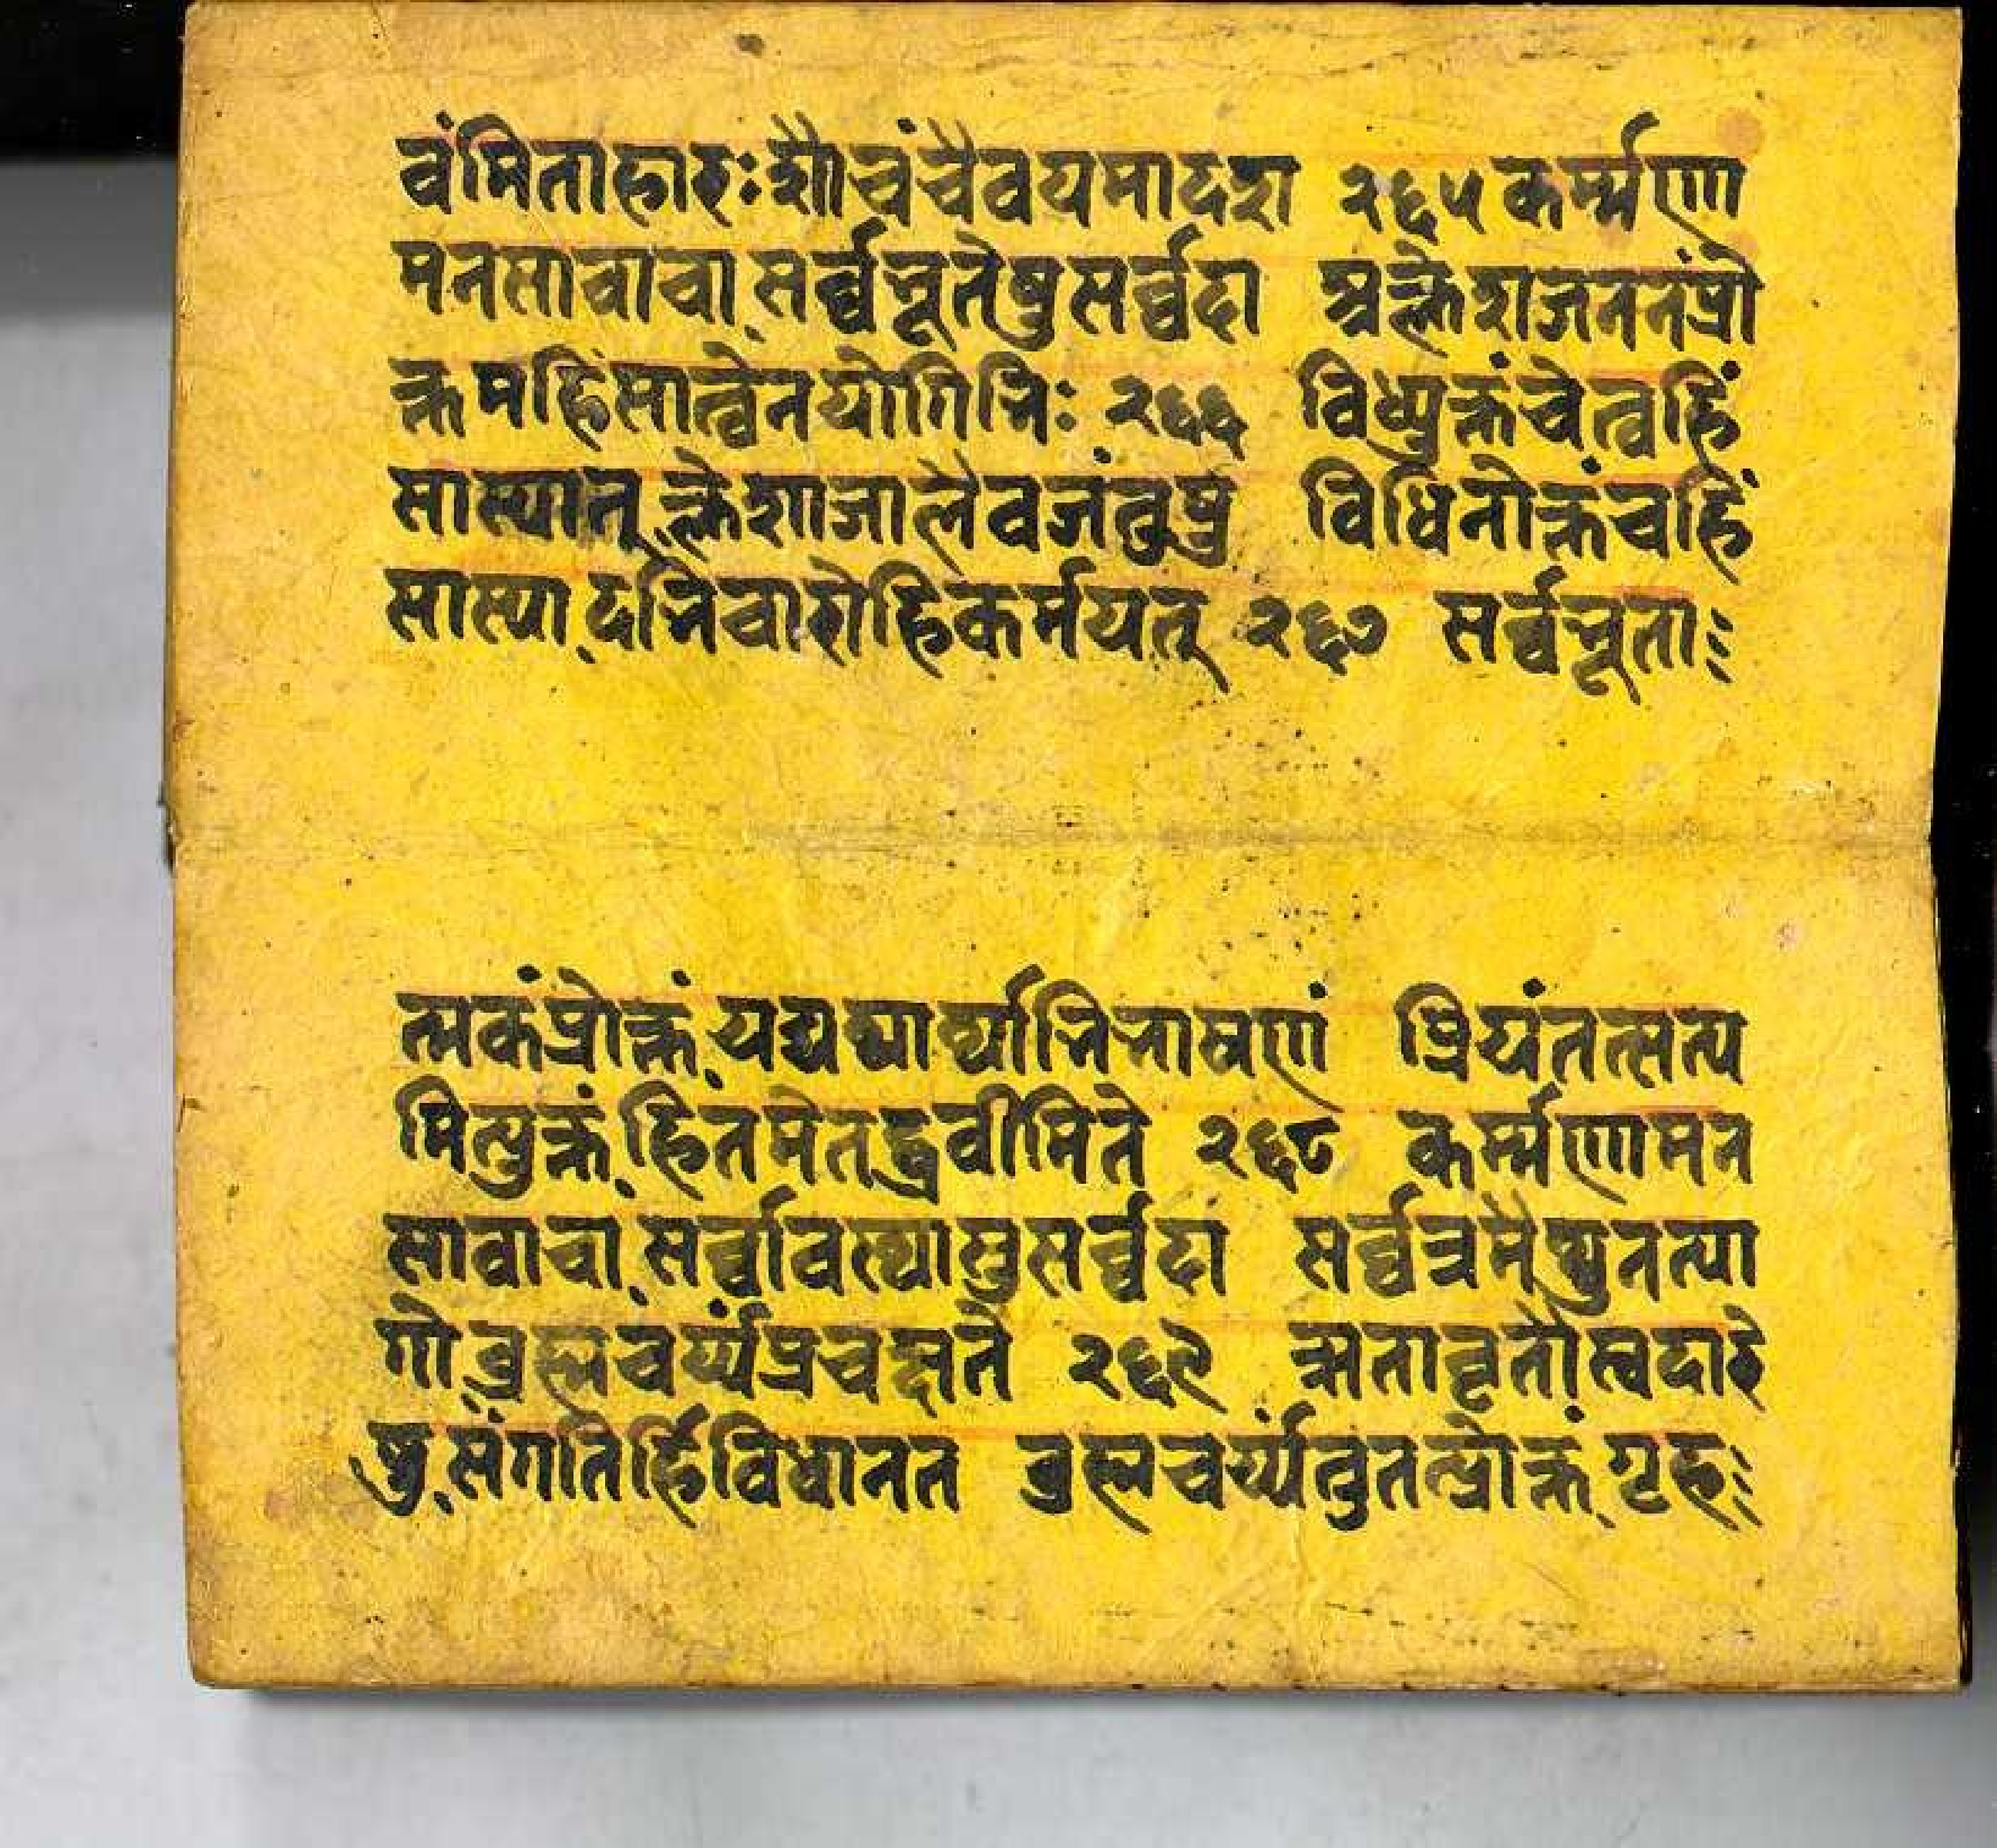 वंमिताहारः शौचं चैव यमादश २६५ कर्म्मणा
मनसा वाचा सर्व्वभूतेषु सर्व्वदा अक्लेशजननं प्रो
क्तमहिंसात्वेन योगिभिः २६६ विध्युक्तं चेत्वहिं
सा स्यात् क्लेशाजालैव जंतुषु विधिनोक्तं च हिं
सा स्यादभिचारो हि कर्म यत् २६७ सर्व्वभूता
त्मकं प्रोक्तं यद्यथार्थाभिभाषणं प्रियं तत्सत्य
मित्युक्तं हितमेतद्ब्रवीमि ते २६८ कर्म्मणा मन
सा वाचा सर्व्वावस्थासु सर्व्वदा सर्व्वत्र मैथुनत्या
गो ब्रह्मचर्य्यं प्रचक्षते २६९ ऋतावृतौ स्वदारे
षु संगतिर्हि विधानत ब्रह्मचर्य्यं तु तत्प्रोक्तं गृह